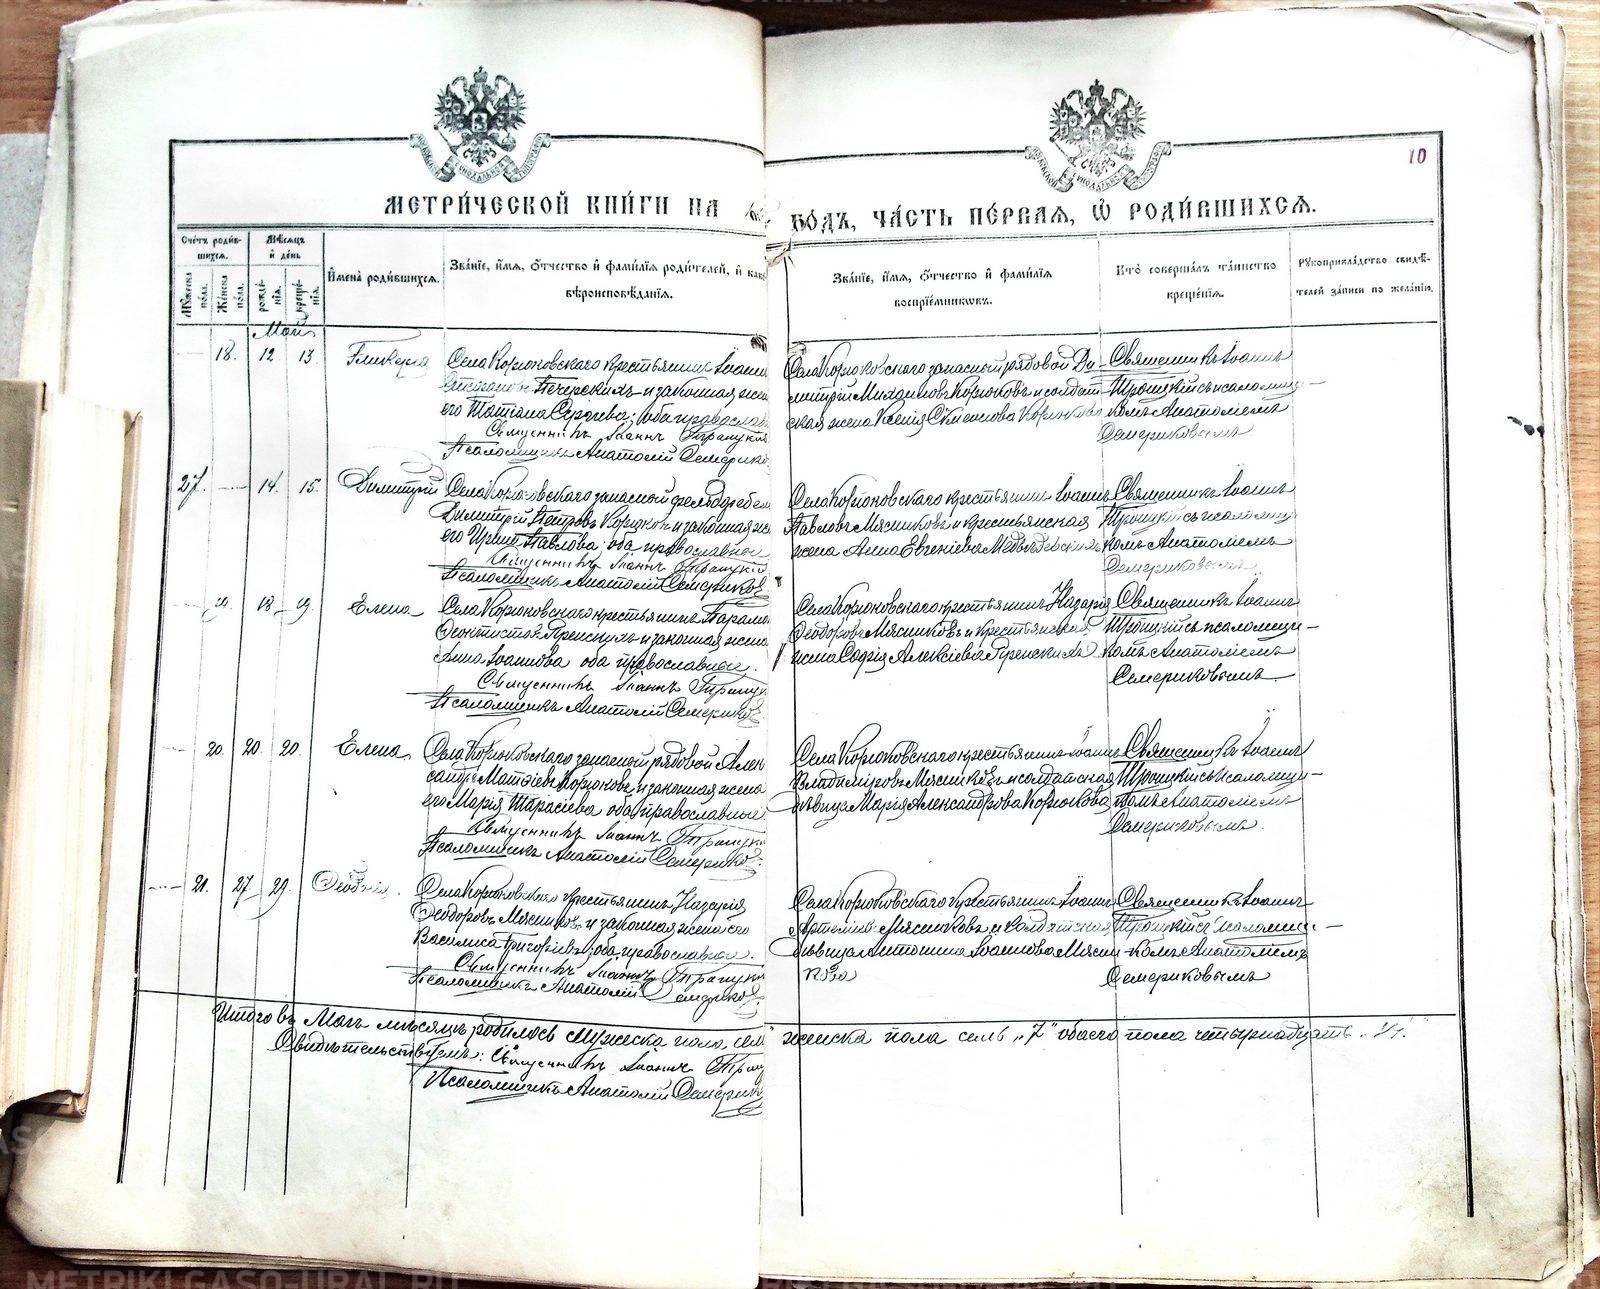 МЕТРИ́ЧЕСКОЙ КНИ́ГИ НА
ГОДЪ, ЧА́СТЬ ПЕ́РВАЯ, Ѡ РОДИ́ВШИХСЯ.
10
Сче́тъ роди́вшихся.
Му́жеска по́ла.
Же́нска по́ла.
Мѣ́сяцъ и де́нь
рожде́нія.
креще́нія.
Имена̀ роди́вшихся.
Зва́ніе, и́мя, о́тчество и фами́лія роди́телей, и како
вѣроисповѣ́данія.
Зва́ніе, и́мя, о́тчество и фами́лія
воспріе́мниковъ.
Кто̀ соверша́лъ та́инство
креще́нія.
Рукоприкла́дство свидѣ́-
телей за́писи по жела́нію.
Май
18. 12 13. Гликерія
Села Корюковскаго крестьянинъ Іоанн
Печерскихъ и законная жена
его Татіана Сергіева; оба православ
Священникъ Іоаннъ Троицкій
Псаломщикъ Анатолій Семерико
Села Корюковскаго запасной рядовой Ди-
митрій Михаиловъ Корюковъ и солдат-
ская жена Ксенія Симеонова Корюкова
Священникъ Іоаннъ
Троицкій съ псаломщи-
комъ Анатоліемъ
Семериковымъ
27. 14. 15. Димитрій
Села Корюковскаго запасной фельдфебель
Димитрій Петровъ Корюковъ и законная же
его Ирина Павлова оба православные
Священникъ Іоаннъ Троицкій
Псаломщикъ Анатолій Семериков
Села Корюковскаго крестьянинъ Іоаннъ
Павловъ Мясниковъ и крестьянская
жена Анна Евгеніева
Священникъ Іоаннъ
Троицкій съ псаломщи-
комъ Анатоліемъ
Семериковымъ
19. 18 19. Елена
Села Корюковскаго крестьянинъ Парамо
и законная жена
Анна Іоаннова оба православные.
Священникъ Іоаннъ Троицк
Псаломщикъ Анатолій Семерико
Села Корюковскаго крестьянинъ Назарій
Ѳеодоровъ Мясниковъ и крестьянская
жена Софія Алексіева
Священникъ Іоаннъ
Троицкій съ псаломщи-
комъ Анатоліемъ
Семериковымъ.
20. 20. 20. Елена
Села Корюковскаго запасной рядовой Алек
сандръ Матѳіевъ Корюковъ и законная жена
его Марія Тарасіева оба православные
Священникъ Іоаннъ Троицкі
Псаломщикъ Анатолій Семерико
Села Корюковскаго крестьянинъ Іоаннъ
Владиміровъ Мясниковъ и солдатская
дѣвица Марія Александрова Корюкова
Священникъ Іоаннъ
Троицкій съ псаломщи-
комъ Анатоліемъ
Семериковымъ.
21. 27 29.
Села Корюковскаго крестьянинъ Назарій
Ѳеодоровъ Мясниковъ и законная жена его
Василиса Григоріева оба православные.
Священникъ Іоаннъ Троицкі
Псаломщикъ Анатолій Семерико
Села Корюковскаго крестьянинъ Іоаннъ
Мясниковъ и солдатская
дѣвица Антонина Іоаннова Мясни-
кова
Священникъ Іоаннъ
Троицкій съ псаломщи-
комъ Анатоліемъ
Семериковымъ
Итого въ Маѣ мѣсяцѣ родилось мужеска пола семь женска пола семь „7“ обоего пола четырнадцать „14“.
Свидѣтельствуемъ: Священникъ Іоаннъ Троиц
Псаломщикъ Анатолій Семерик
METRIKI.GASO-URAL.RU